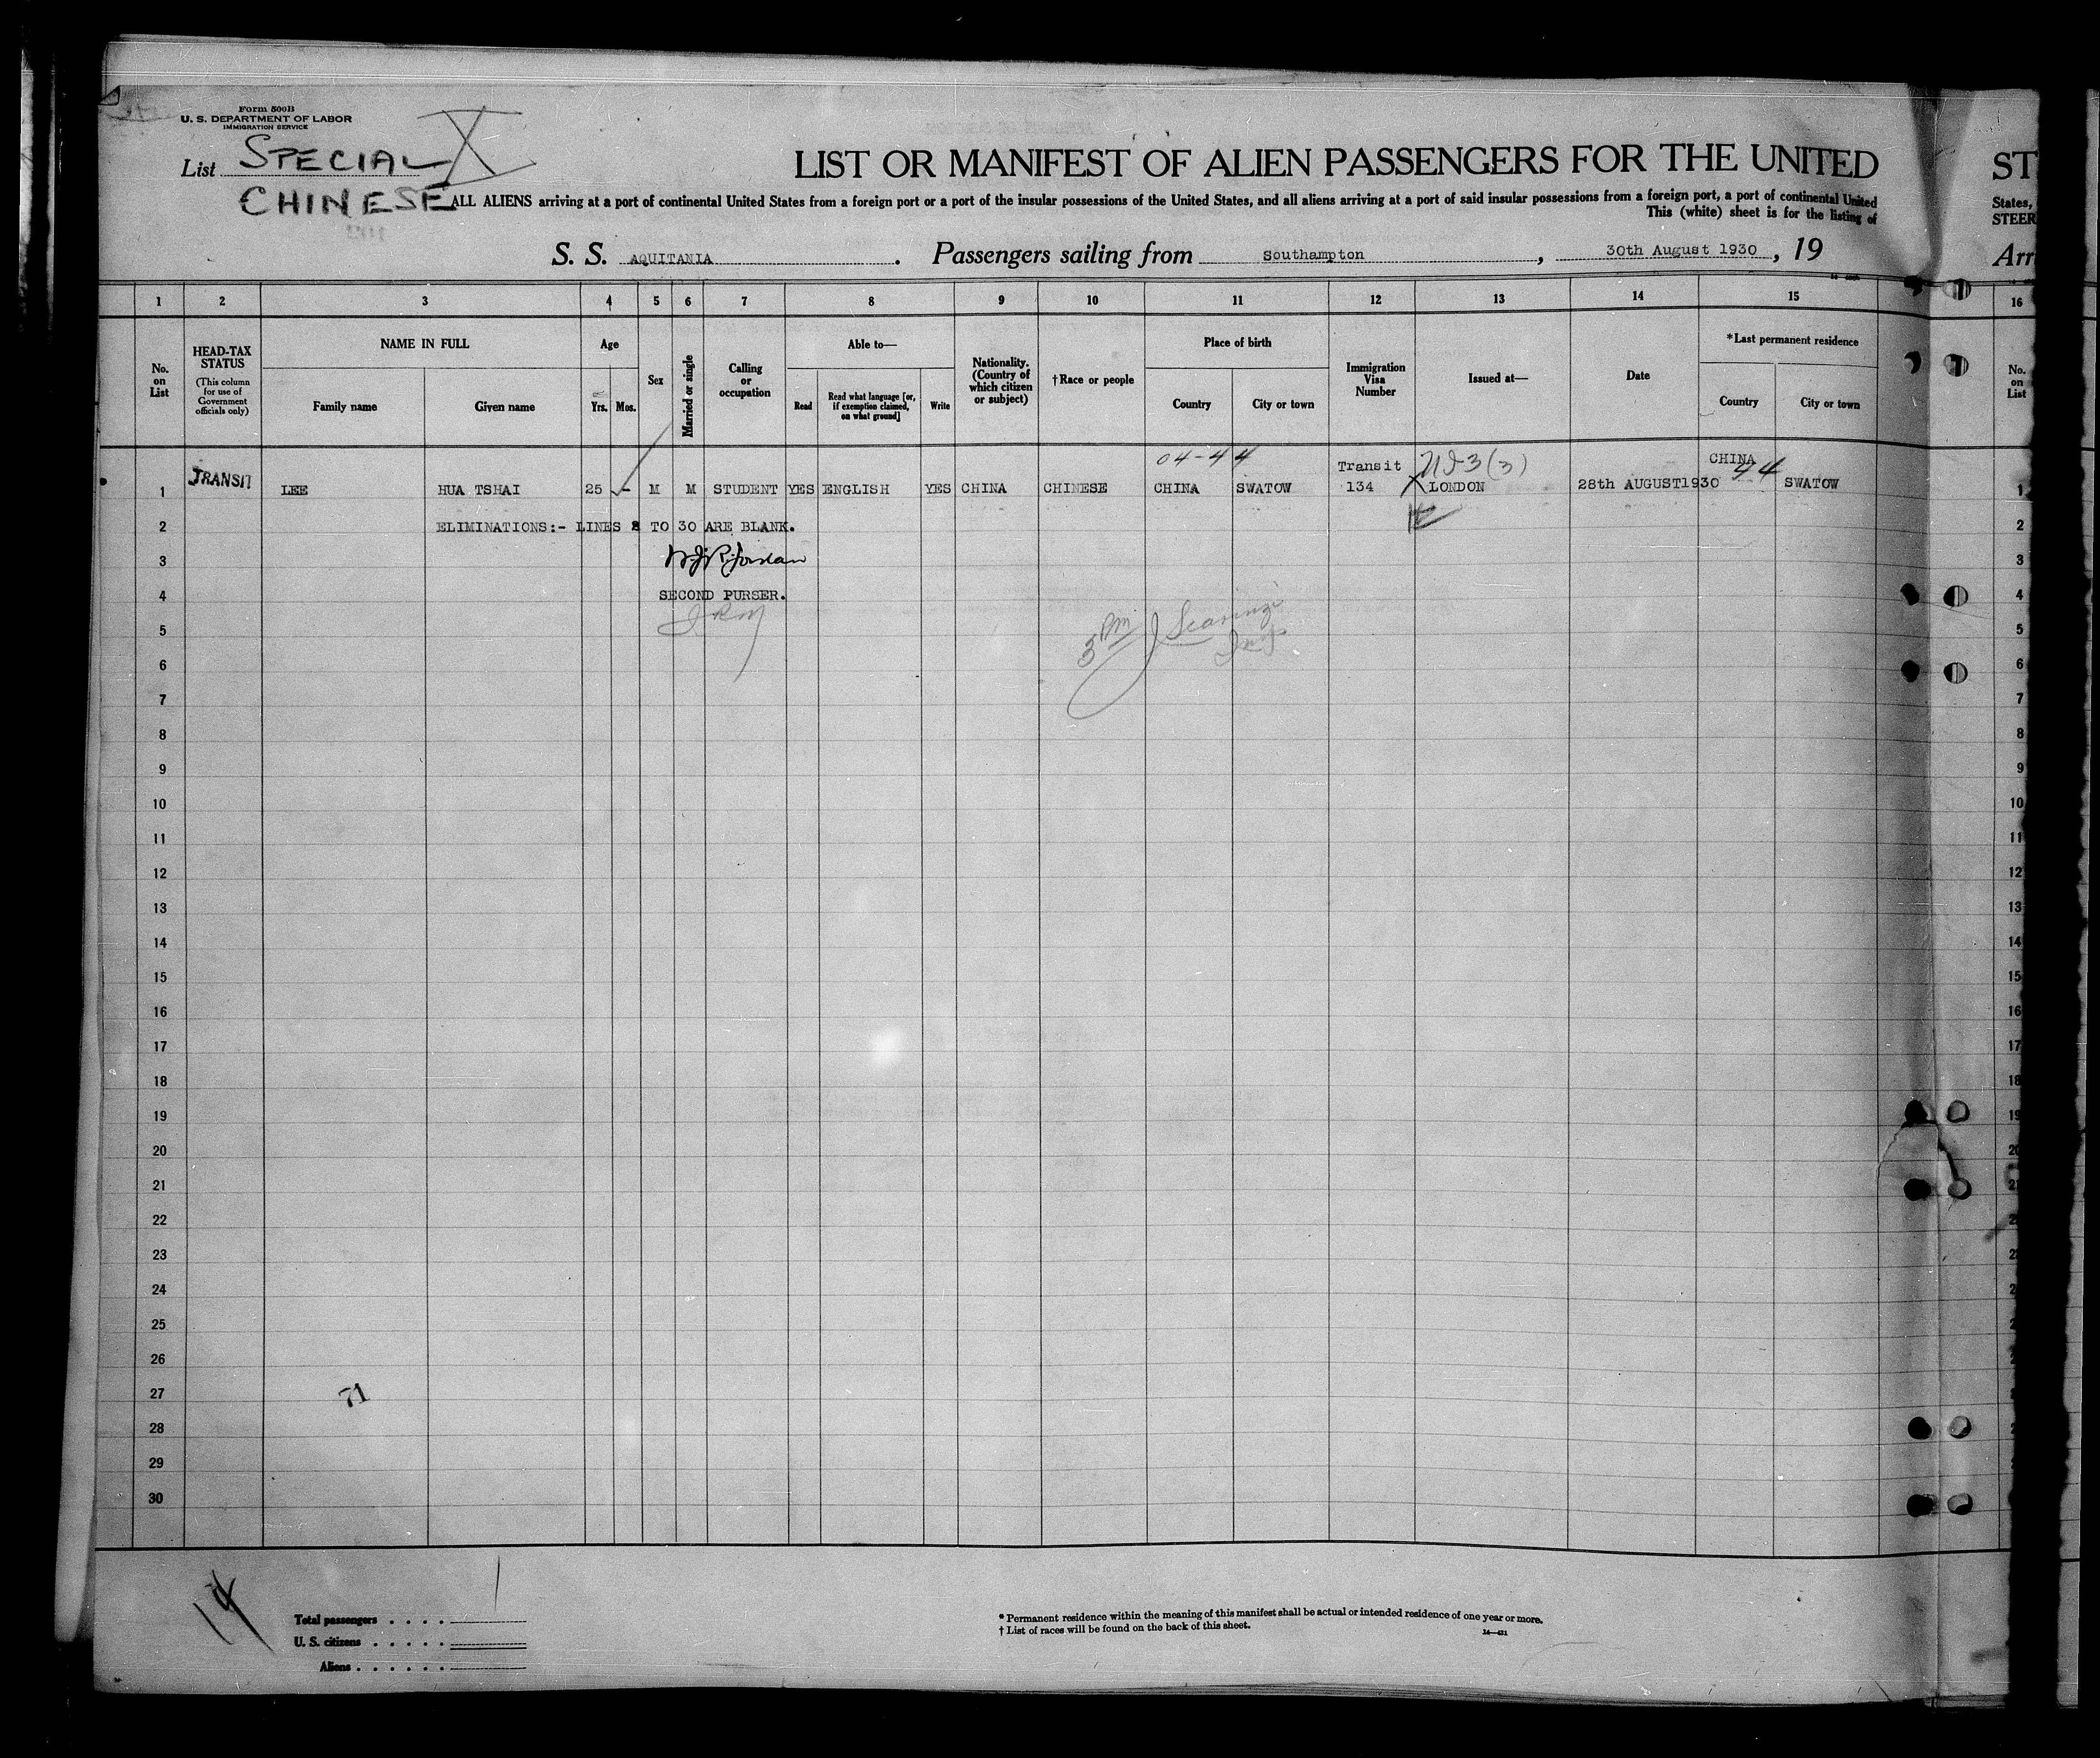 Form 500B
U. S. DEPARTMENT OF LABOR
IMMIGRATION SERVICE
List SPECIAL X
CHINESE
LIST OR MANIFEST OF ALIEN PASSENGERS FOR THE UNITED
ST
ALL ALIENS arriving at a port of continental United States from a foreign port or a port of the insular possessions of the United States, and all aliens arriving at a port of said insular possessions from a foreign port, a port of continental United
States,
This (white) sheet is for the listing of
STEER
S. S. AQUITANIA . Passengers sailing from Southampton , 30th August 1930 , 19
Arr
1 2 3 4 5 6 7 8 9 10 11 12 13 14 15 16
No. on List
HEAD-TAX STATUS
(This column for use of Government officials only)
NAME IN FULL
Family name
Given name
Age
Yrs. Mos.
Sex
Married or single
Calling or occupation
Able to—
Read
Read what language [or, if exemption claimed, on what ground]
Write
Nationality. (Country of which citizen or subject)
†Race or people
Place of birth
Country
City or town
Immigration Visa Number
Issued at—
Date
*Last permanent residence
Country
City or town
No. on List
04-44 Transit CHINA 44
1 TRANSIT LEE HUA TSHAI 25 - M M STUDENT YES ENGLISH YES CHINA CHINESE CHINA SWATOW 134 X LONDON 28th AUGUST1930 SWATOW 1
2 ELIMINATIONS:- LINES 2 TO 30 ARE BLANK. 2
3 3
4 SECOND PURSER. 4
5 5
3 PM
6 6
7 7
8 8
9 9
10 10
11 11
12 12
13 13
14 14
15 15
16 16
17 17
18 18
19 19
20 20
21 21
22
23
24
25
26
27
71
28
29
30
14
Total passengers . . . . 1
U. S. citizens . . . . .
Aliens . . . . . .
* Permanent residence within the meaning of this manifest shall be actual or intended residence of one year or more.
† List of races will be found on the back of this sheet.